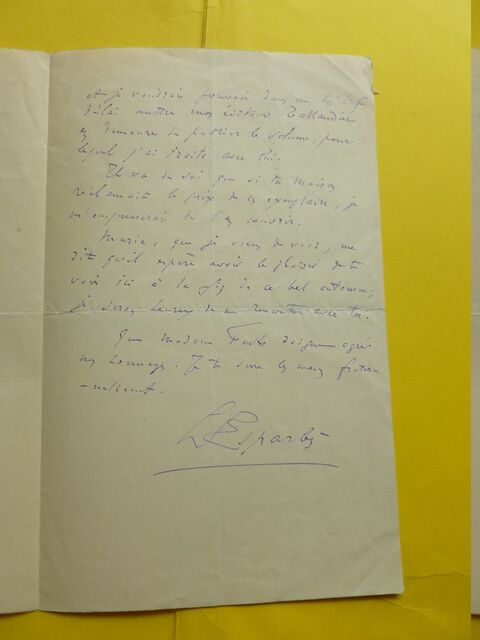 et je voudrais pouvoir dans un très bref
délai mettre mon éditeur Tallandier
en demeure de publier le volume, pour
lequel j'ai traité avec lui.
Il va de soi que si ta maison
réclamait le prix de ces exemplaires, je
m'empresserais de t'en couvrir.
que je viens de voir, me
dit qu'il espère avoir le plaisir de te
voir ici à la fin de ce bel automne,
je serai heureux de me rencontrer avec toi.
Que madame daigne agréer
mes hommages. Je te serre les mains frater-
-nellement.
L Esparbès